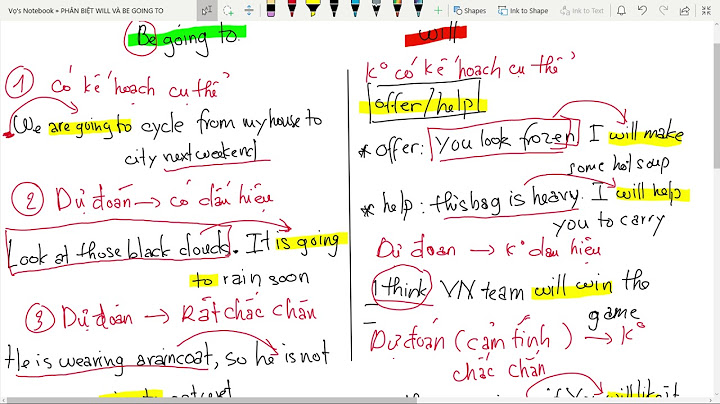 Vọ's Notebook • PHÂN BIỆT WILL VÀ BE GOING TO
Shapes
Ink to Shape
Ink to Text
Be going to
① Có kế hoạch cụ thể
We are going to cycle from my house to
city next weekend
② Dự đoán → có dấu hiệu
Look at those black clouds. It is going
to rain soon
③ Dự đoán → Rất chắc chắn
He is wearing a raincoat, so he is not
will
K° có kế hoạch cụ thể
offer/help
* offer: You look frozen I will make
some hot soup
* help: this bag is heavy. I will help
you to carry
Dự đoán → K° dấu hiệu
I think VN team will win the
game
Dự đoán (cảm tính) → K°
chắc chắn
if You will like it